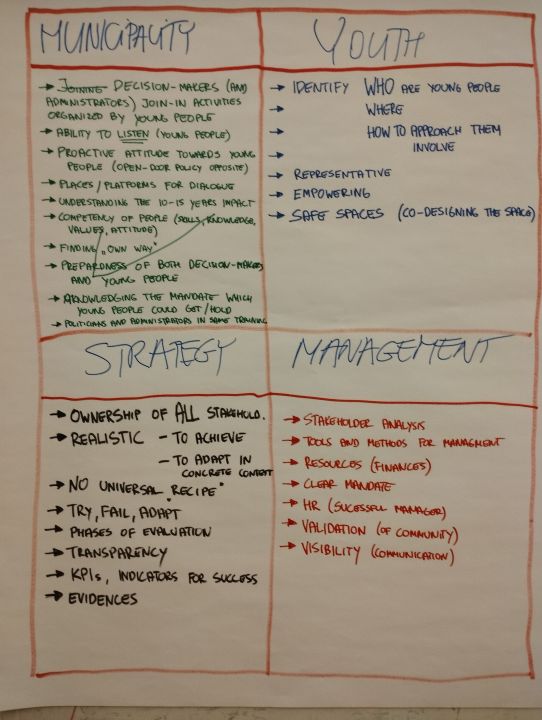 MUNICIPALITY
→ Joining DECISION-MAKERS (AND
ADMINISTRATORS) JOIN-IN ACTIVITIES
ORGANIZED BY YOUNG PEOPLE
→ ABILITY TO LISTEN (YOUNG PEOPLE)
→ PROACTIVE ATTITUDE TOWARDS YOUNG
PEOPLE (OPEN-DOOR POLICY OPPOSITE)
→ PLACES/PLATFORMS FOR DIALOGUE
→ UNDERSTANDING THE 10-15 YEARS IMPACT
→ COMPETENCY OF PEOPLE (SKILLS, KNOWLEDGE,
VALUES, ATTITUDE)
→ FINDING „OWN WAY"
→ PREPARDNESS OF BOTH DECISION-MAKERS
AND YOUNG PEOPLE
→ AKNOWLEDGING THE MANDATE WHICH
YOUNG PEOPLE COULD GET/HOLD
→ POLITICIANS AND ADMINISTRATORS IN SAME TRAINING
YOUTH
→ IDENTIFY WHO ARE YOUNG PEOPLE
→ WHERE
→ HOW TO APPROACH THEM
→ INVOLVE
→ REPRESENTATIVE
→ EMPOWERING
→ SAFE SPACES (CO-DESIGNING THE SPACE)
STRATEGY
→ OWNERSHIP OF ALL STAKEHOLD.
→ REALISTIC - TO ACHIEVE
- TO ADAPT IN
CONCRETE CONTEXT
→ NO UNIVERSAL „RECIPE"
→ TRY, FAIL, ADAPT
→ PHASES OF EVALUATION
→ TRANSPARENCY
→ KPIs, INDICATORS FOR SUCCESS
→ EVIDENCES
MANAGEMENT
→ STAKEHOLDER ANALYSIS
→ TOOLS AND METHODS FOR MANAGMENT
→ RESOURCES (FINANCES)
→ CLEAR MANDATE
→ HR (SUCESSFUL MANAGER)
→ VALIDATION (OF COMMUNITY)
→ VISIBILITY (COMMUNICATION)